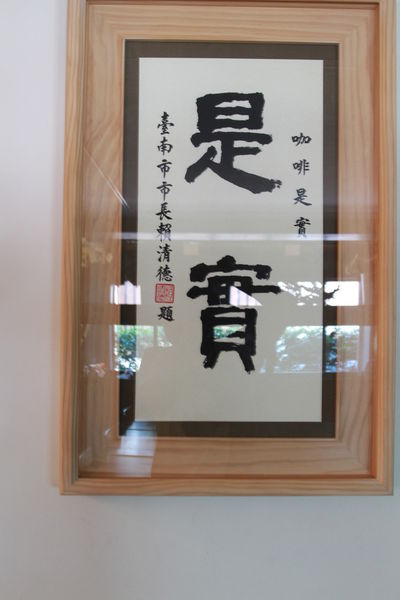 咖啡是實
是實
臺南市市長賴清德題